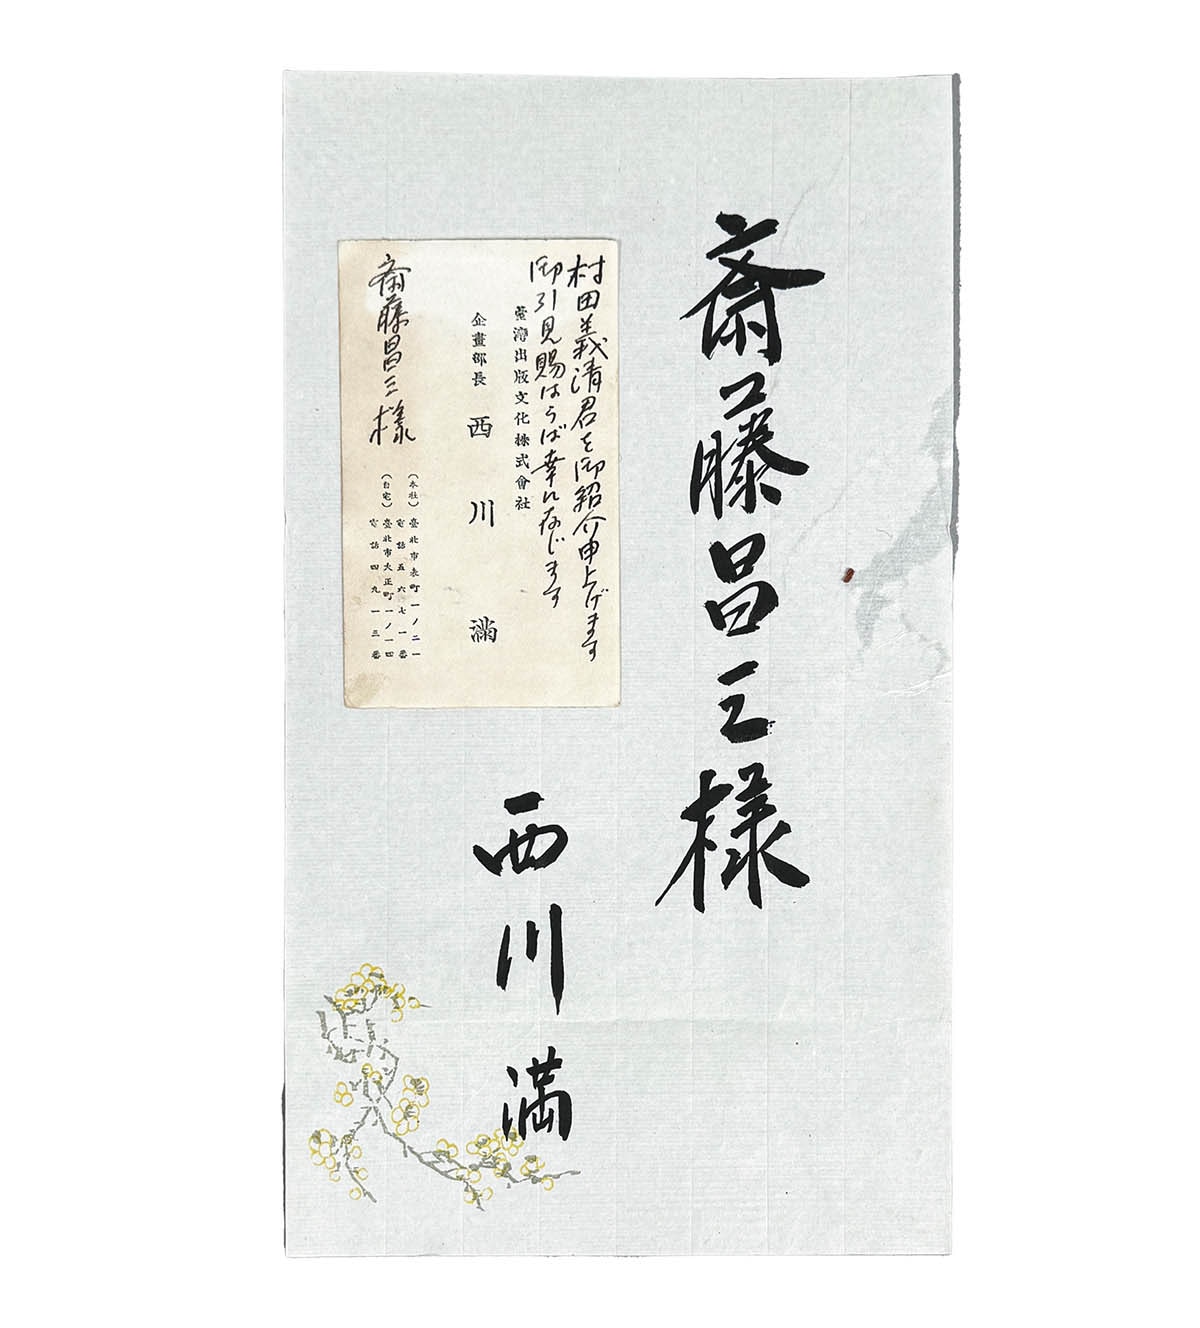 斎藤昌三様
西川満
村田義清君を御紹介申上げます
御引見賜はらば幸に存じます
臺灣出版文化株式會社
企畫部長 西川滿
斎藤昌三様
(本社) 臺北市表町一ノ二一
電話五六七一番
(自宅) 臺北市大正町一ノ一四
電話四九一三番